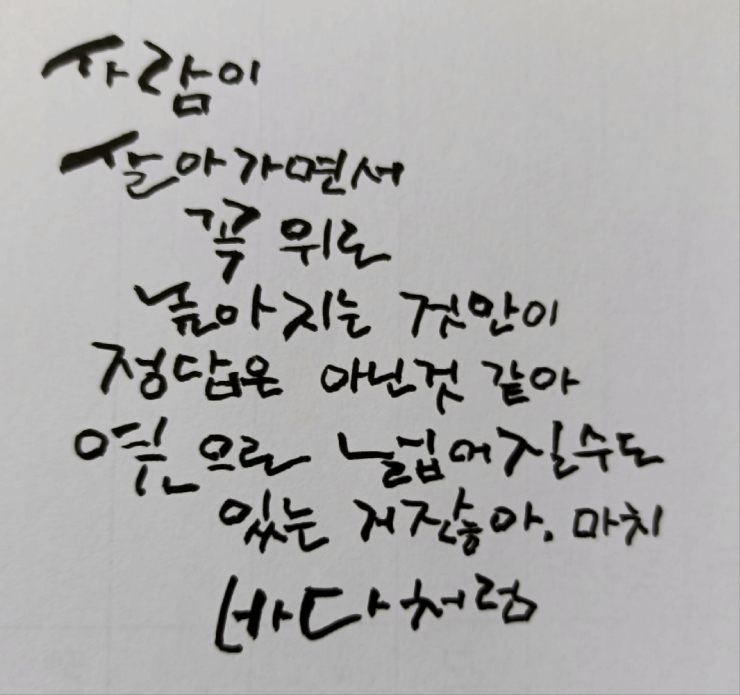 사람이
살아가면서
꼭 위로
높아지는 것만이
정답은 아닌것 같아
옆으로 넓어질수도
있는 거잖아. 마치
바다처럼